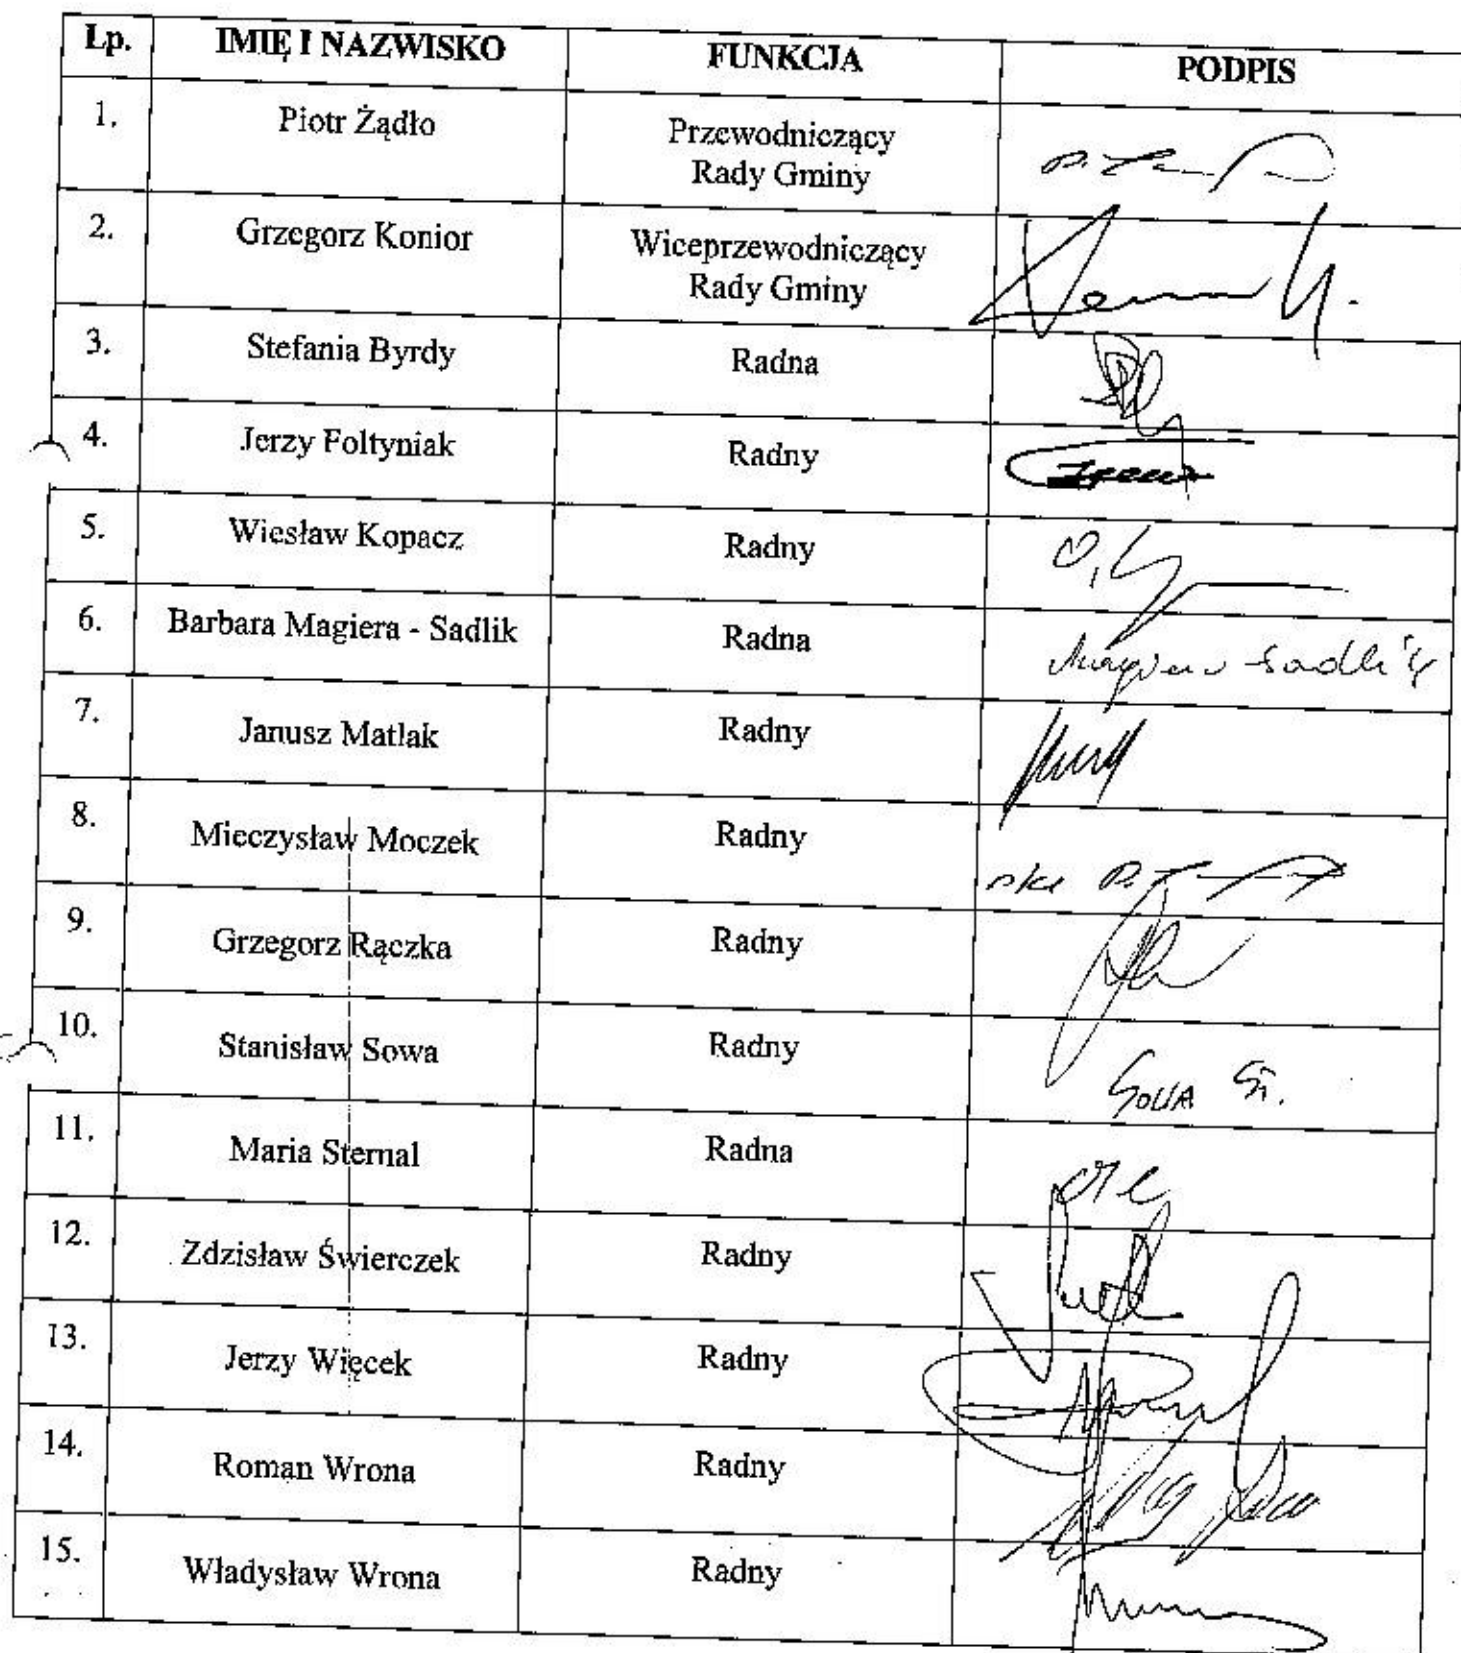 Lp. IMIĘ I NAZWISKO FUNKCJA PODPIS
1. Piotr Żądło Przewodniczący
Rady Gminy
2. Grzegorz Konior Wiceprzewodniczący
Rady Gminy
3. Stefania Byrdy Radna
4. Jerzy Foltyniak Radny
5. Wiesław Kopacz Radny
6. Barbara Magiera - Sadlik Radna
7. Janusz Matlak Radny
8. Mieczysław Moczek Radny
9. Grzegorz Rączka Radny
10. Stanisław Sowa Radny SOWA St.
11. Maria Sternal Radna
12. Zdzisław Świerczek Radny
13. Jerzy Więcek Radny
14. Roman Wrona Radny
15. Władysław Wrona Radny